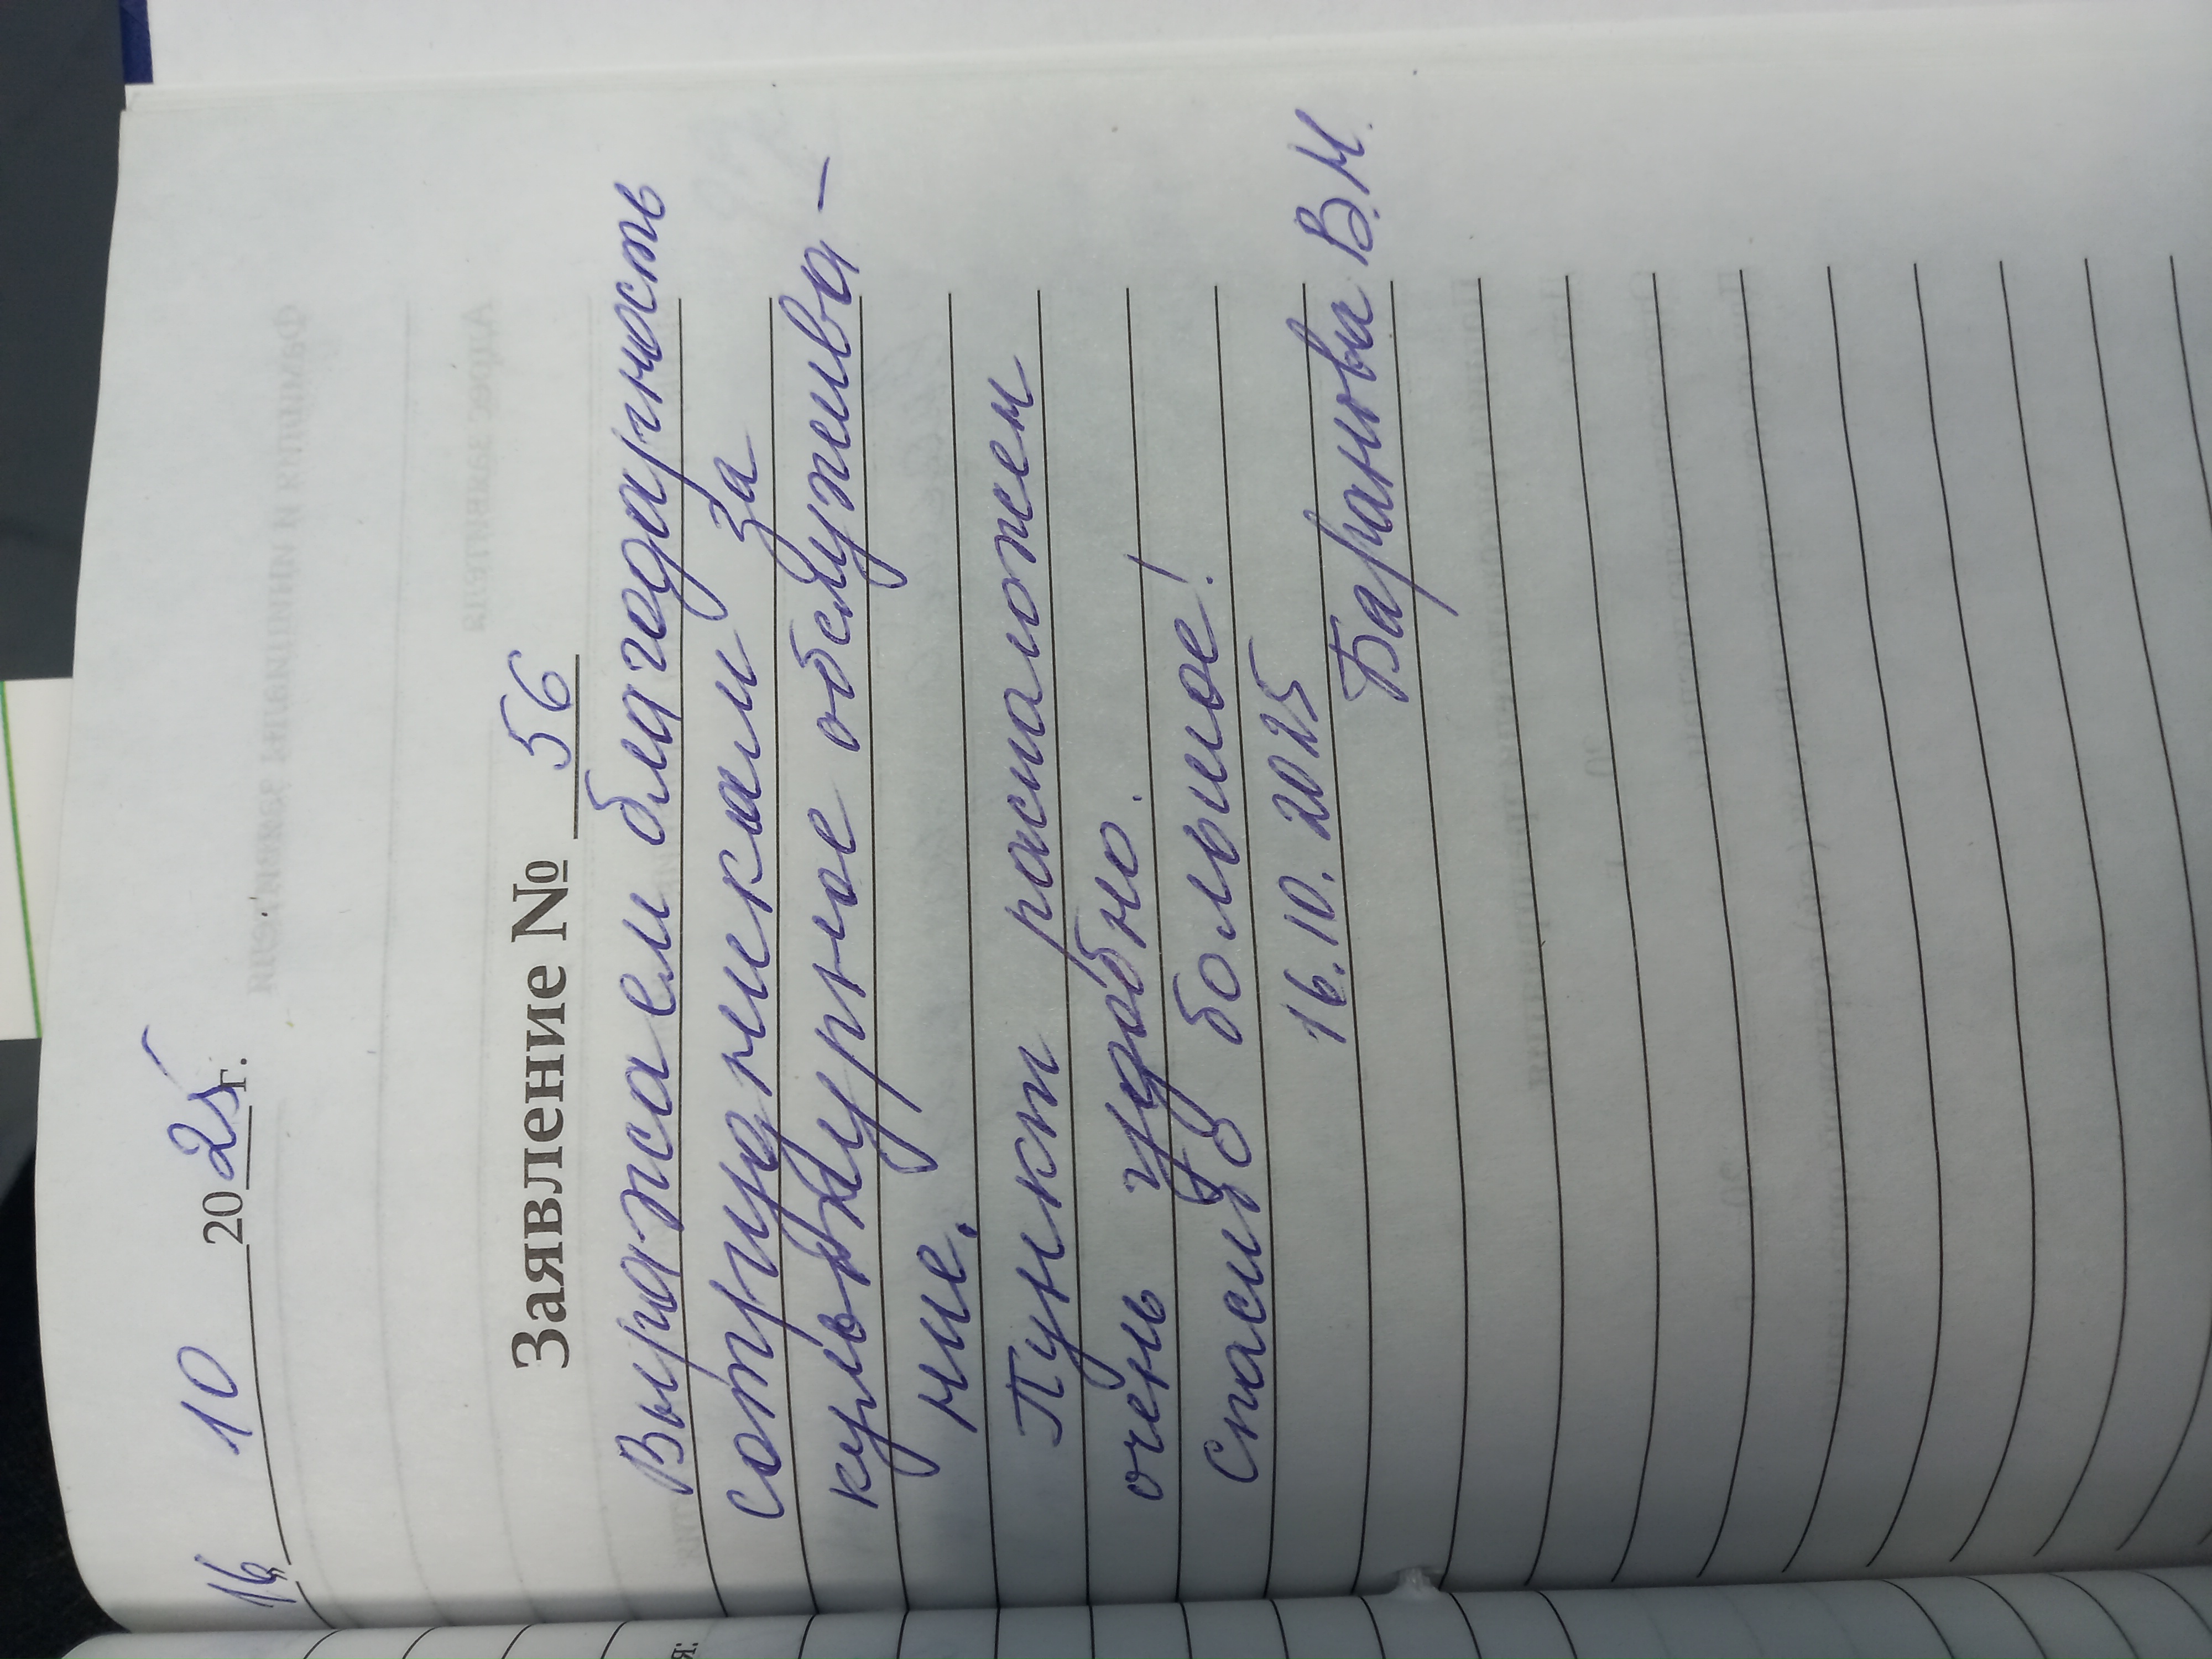 16 10 2025 г.
Заявление № 56
Выражаем благодарность
сотрудникам за
культурное обслужива-
ние.
Пункт расположен
очень удобно.
Спасибо большое!
16.10.2025
Баранова В.М.